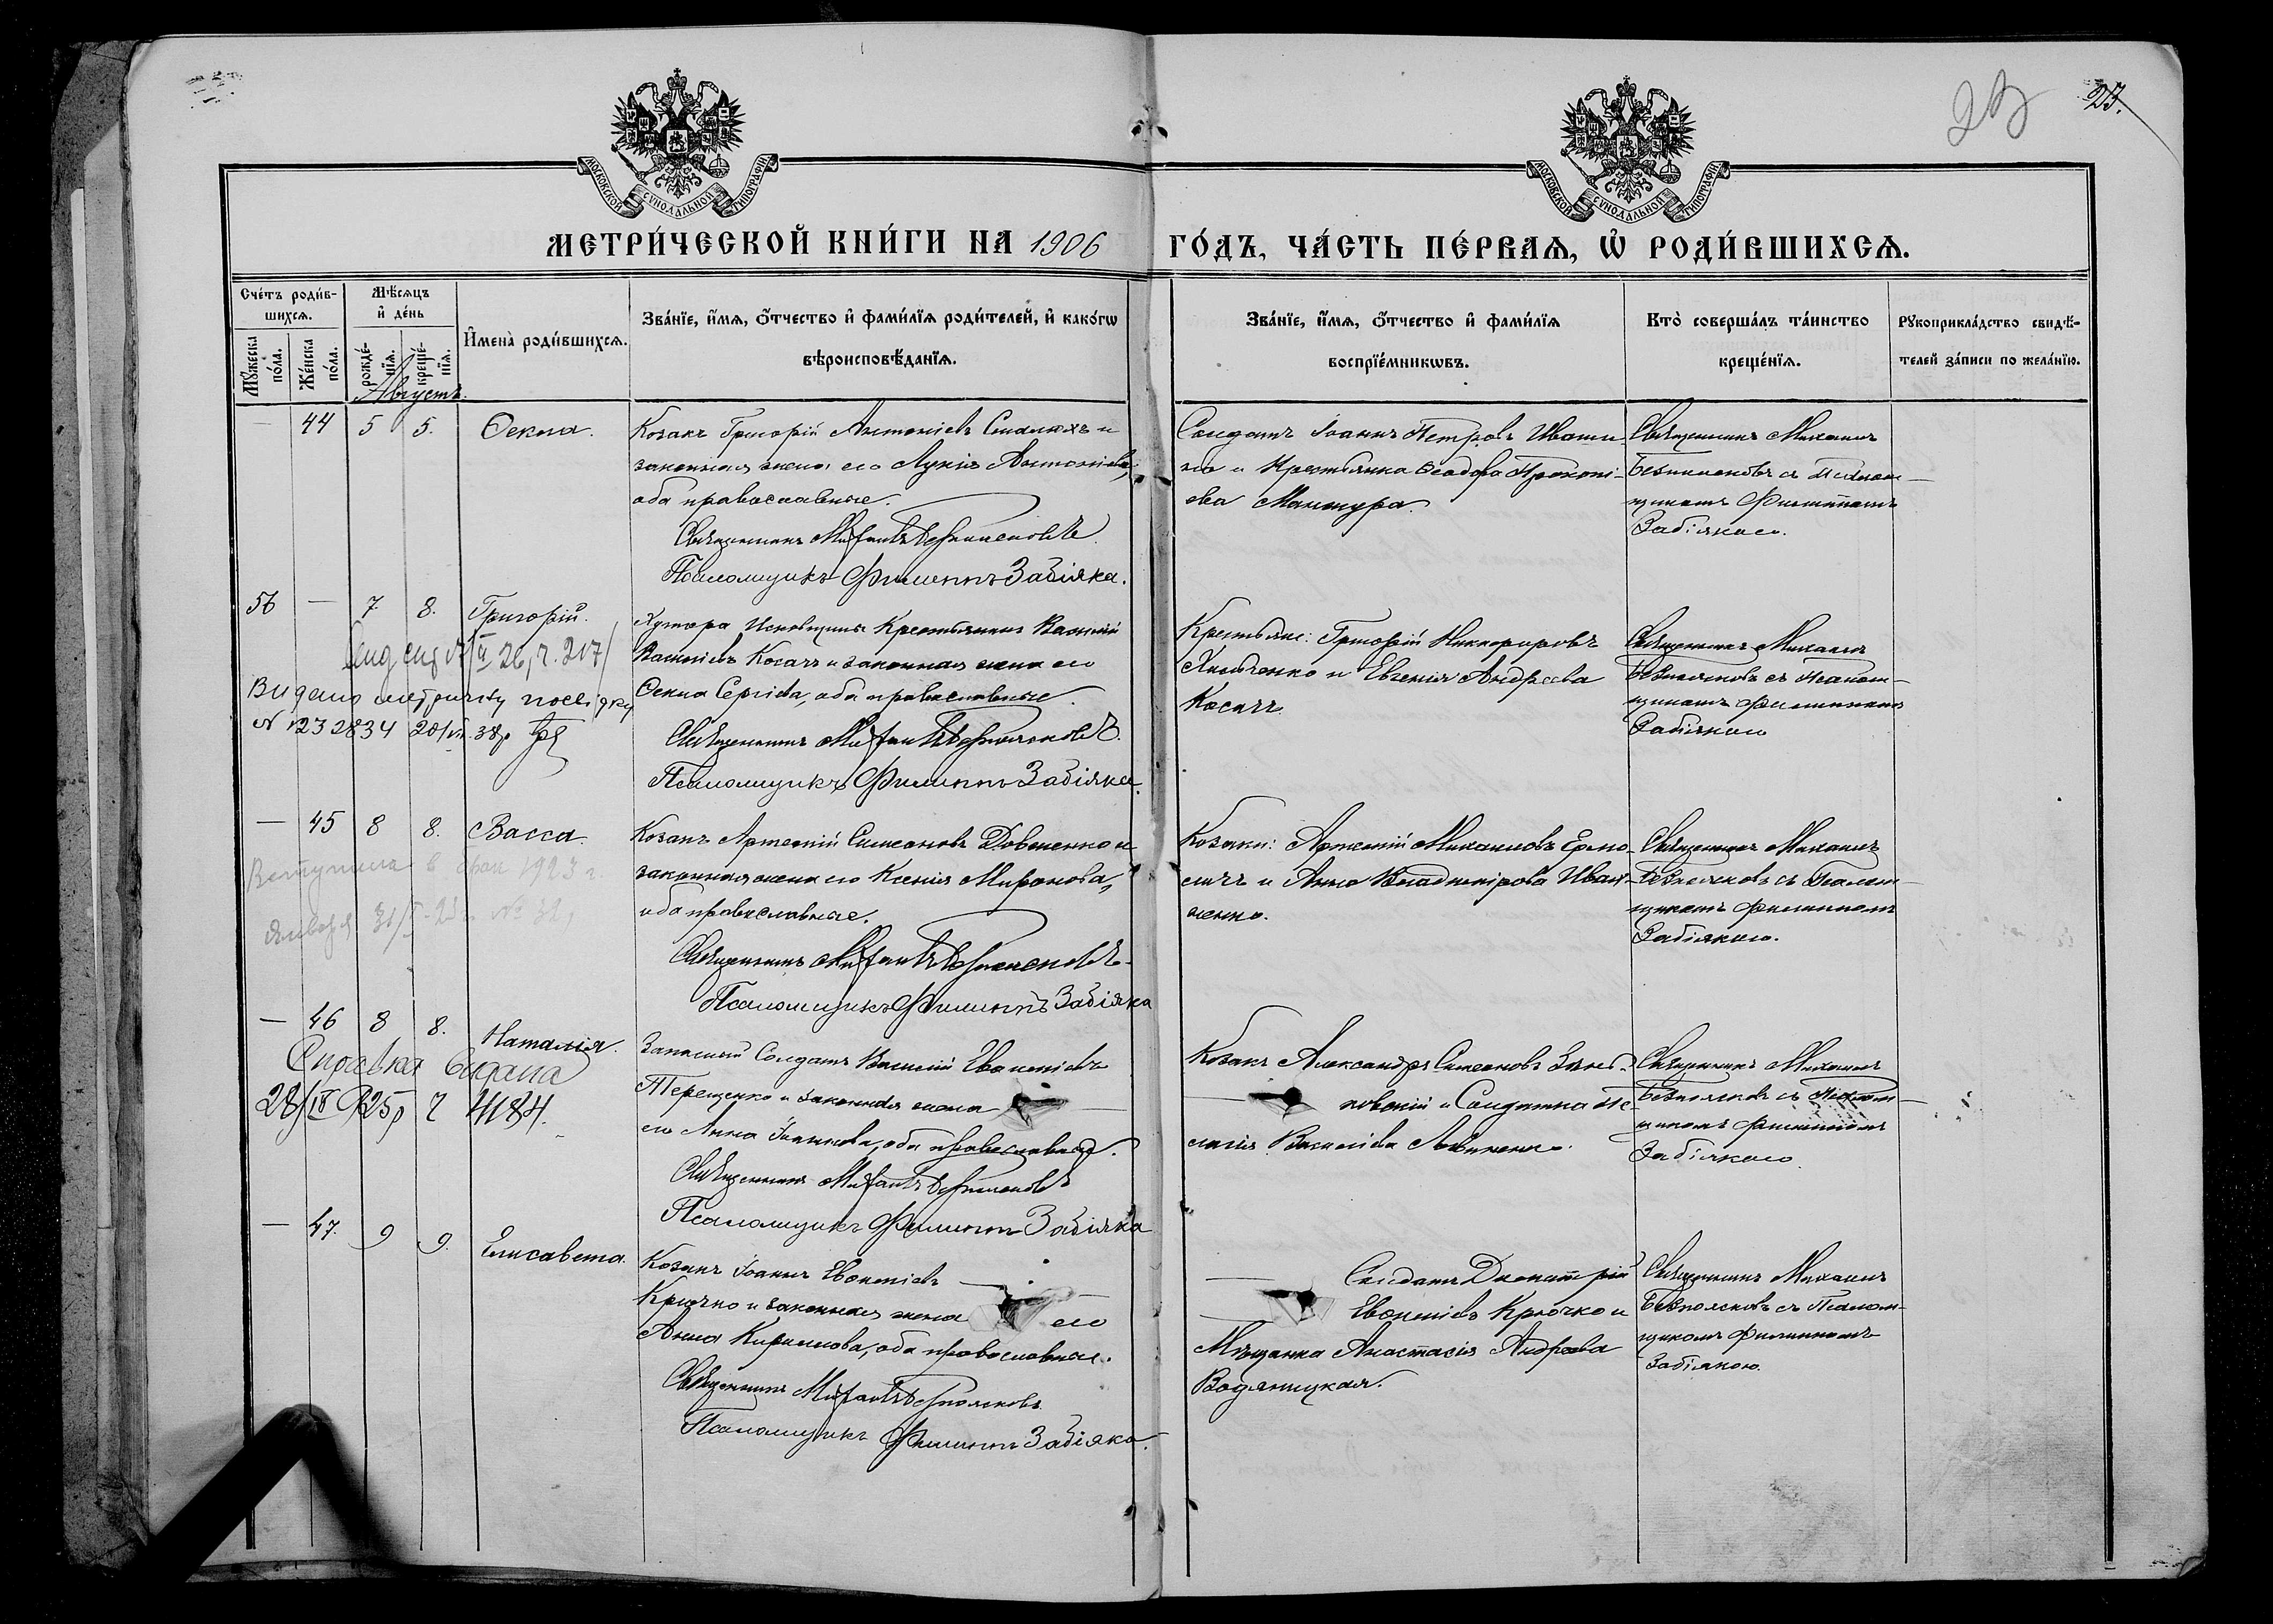 23
23.
МОСКОВСКОЙ СѴНОДАЛЬНОЙ ТИПОГРАФІИ
МОСКОВСКОЙ СѴНОДАЛЬНОЙ ТИПОГРАФІИ
МЕТРИ́ЧЕСКОЙ КНИ́ГИ НА 1906 ГО́ДЪ, ЧА́СТЬ ПЕ́РВАѦ, Ѽ РОДИ́ВШИХСѦ.
Сче́тъ роди́в-
шихсѧ.
Мꙋ́жеска по́ла.
Же́нска по́ла.
Мѣ́сѧцъ
и҆ де́нь
рожде́-
нїѧ.
креще́-
нїѧ.
И҆мена̀ роди́вшихсѧ.
Зва́нїе, и҆́мѧ, ѻ҆́тчество и҆ фами́лїѧ роди́телей, и҆ како́гѡ
вѣроисповѣ́данїѧ.
Зва́нїе, и҆́мѧ, ѻ҆́тчество и҆ фами́лїѧ
воспрїе́мникѡвъ.
Кто̀ соверша́лъ та́инство
креще́нїѧ.
Рꙋкоприкла́дство свидѣ́-
телей за́писи по жела́нїю.
Августъ.
— 44 5 5. Ѳекла.
Козакъ Григорій Антоніевъ и
законная жена его Лукія Антоніева,
оба православные.
Священникъ Михаилъ Безпоясковъ
Псаломщикъ Филиппъ Забіяка.
Солдатъ Іоаннъ Петровъ Иваш-
ко и Крестьянка Ѳеодора Прокопі-
ева Манжура.
Священникъ Михаилъ
Безпоясковъ съ Псалом-
щикомъ Филиппомъ
Забіякою.
56 — 7 8. Григорій.
26, 217
Видано метричну посвідку
N 1232834 20/VI. 38р
Хутора Крестьянинъ Василій
Косачъ и законная жена его
Ѳекла Сергіева, оба православные.
Священникъ Михаилъ Безпоясковъ.
Псаломщикъ Филиппъ Забіяка.
Крестьяне: Григорій Никифоровъ
Хильченко и Евгенія Андреева
Косачъ.
Священникъ Михаилъ
Безпоясковъ съ Псалом-
щикомъ Филиппомъ
Забіякою
— 45 8 8. Васса.
Вступила в брак 1923 г.
января 31/I-23 г. № 32,
Козакъ Артемій Симеоновъ Довженко и
законная жена его Ксенія Миронова,
оба православные.
Священникъ Михаилъ Безпоясковъ
Псаломщикъ Филиппъ Забіяка
Козаки: Артемій Михаиловъ Ермо-
личъ и Анна Владимірова Иван-
ченко.
Священникъ Михаилъ
Безпоясковъ съ Псалом-
щикомъ Филиппомъ
Забіякою.
— 46 8 8. Наталія.
Справка видана
28/IX 925р 4184.
Запасный Солдатъ Василій Евфиміевъ
Терещенко и законная жена
его Анна Іоаннова, оба православные.
Священникъ Михаилъ Безпоясковъ
Псаломщикъ Филиппъ Забіяка
Козакъ Александръ Симеоновъ Зѣнь-
ковскій и Солдатка Пе-
лагія Василіева Литвиненко.
Священникъ Михаилъ
Безпоясковъ съ Псалом-
щикомъ Филиппомъ
Забіякою.
— 47. 9 9. Елисавета.
Козакъ Іоаннъ Евфиміевъ
Крючко и законная жена его
Анна Кириллова, оба православные.
Священникъ Михаилъ Безпоясковъ
Псаломщикъ Филиппъ Забіяка.
Солдатъ Димитрій
Евфиміевъ Крючко и
Мѣщанка Анастасія Андреева
Водяницкая.
Священникъ Михаилъ
Безпоясковъ съ Псалом-
щикомъ Филиппомъ
Забіякою.